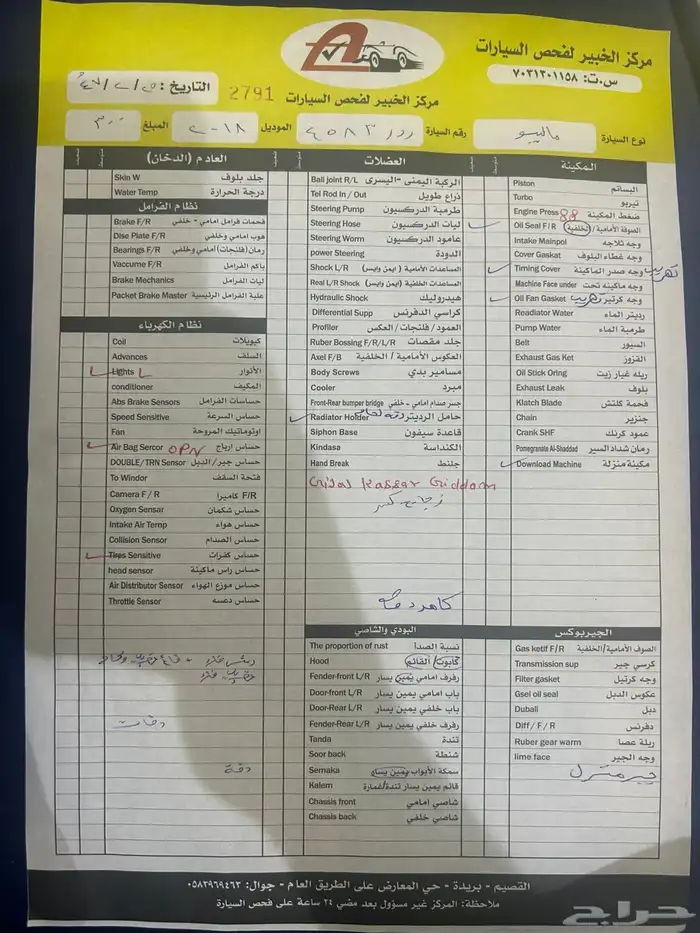 مركز الخبير لفحص السيارات
س.ت: ٧٠٣١٢٠١١٥٨
مركز الخبير لفحص السيارات
2791
التاريخ:
نوع السيارة ماليبو
رقم السيارة ر د ر ٤٥٨٣
الموديل ٢٠١٨
المبلغ ٣٠٠
المكينة
Piston البساتم
Turbo تيربو
Engine Press 88 ضغط المكينة
Oil Seal F/R الصوفة الأمامية/الخلفية
Intake Mainpol وجه ثلاجه
Cover Gaskat وجه غطاء البلوف
Timing Cover وجه صدر الماكينة تهريب
Machine Face under وجه ماكينه تحت
Oil Fan Gasket وجه كرتير تهريب
Readiator Water رديتر الماء
Pump Water طرمبة الماء
Belt السيور
Exhaust Gas Ket القزوز
Oil Stick Oring ريله غيار زيت
Exhaust Leak بلوف
Klatch Blade فحمة كلتش
Chain جنزير
Crank SHF عمود كرنك
Pomegranate Al-Shaddad رمان شداد السير
Download Machine مكينة منزلة
الجيربوكس
Gas ketif F/R الصوف الأمامية/الخلفية
Transmission sup كرسي جير
Filter gasket وجه كرتيل
Gsel oil seal عكوس الدبل
Duball دبل
Diff/ F / R دفرنس
Ruber gear warm ريلة عصا
lime face وجه الجير
جير منزل
العضلات
Ball joint R/L الركبة اليمنى -اليسرى
Tei Rod In / Out ذراع طويل
Steering Pump طرمبة الدركسيون
Steering Hose ليات الدركسيون
Steering Worm عامود الدركسيون
power Steering الدودة
Shock L/R المساعدات الأمامية (ايمن وايسر)
Real L/R Shock المساعدات الخلفية (ايمن وايسر)
Hydraulic Shock هيدروليك
Differential Supp كراسي الدفرنس
Profiler العمود / فلنجات / العكس
Ruber Bossing F/R/L/R جلد مقصات
Axel F/B العكوس الأمامية / الخلفية
Body Screws مسامير بدي
Cooler مبرد
Front-Rear bumper bridge جسر صدام امامي - خلفي
Radiator Holder حامل الرديتر
Siphon Base قاعدة سيفون
Kindasa الكنداسة
Hand Break جلنط
زجاج كسر
البودي والشاصي
The proportion of rust نسبة الصدأ
Hood كابوت/القائم
Fender-front L/R رفرف امامي يمين يسار
Door-front L/R باب امامي يمين يسار
Door-Rear L/R باب خلفي يمين يسار
Fender-Rear L/R رفرف خلفي يمين يسار
Tanda تندة
Soor back شنطة
Semaka سمكة الأبواب يمين يسار
Kalem قائم يمين يسار تندة/غمارة
Chassis front شاصي امامي
Chassis back شاصي خلفي
العادم (الدخان)
Skin W جلد بلوف
Water Temp درجة الحرارة
نظام الفرامل
Brake F/R فحمات فرامل امامي - خلفي
Dise Plate F/R هوب امامي وخلفي
Bearings F/R رمان (فلنجات) أمامي وخلفي
Vaccume F/R باكم الفرامل
Brake Mechanics ليات الفرامل
Packet Brake Master علبة الفرامل الرئيسية
نظام الكهرباء
Coil كويلات
Advances السلف
Lights الأنوار
conditioner المكيف
Abs Brake Sensors حساسات الفرامل
Speed Sensitive حساس السرعة
Fan اوتوماتيك المروحة
Air Bag Sercor OPN حساس ارياج
DOUBLE/TRN Sensor حساس جير/الدبل
To Windor فتحة السقف
Camera F / R كاميرا F/R
Oxygen Sensar حساس شكمان
Intake Air Temp حساس هواء
Collision Sensor حساس الصدام
Tires Sensitive حساس كفرات
head sensor حساس راس ماكينة
Air Distributor Sensor حساس موزع الهواء
Throttle Sensor حساس دعسه
دقات
دقة
القصيم - بريدة - حي المعارض على الطريق العام - جوال: ٠٥٨٣٩٦٩٤٦٣
ملاحظة: المركز غير مسؤول بعد مضي ٢٤ ساعة على فحص السيارة
حراج